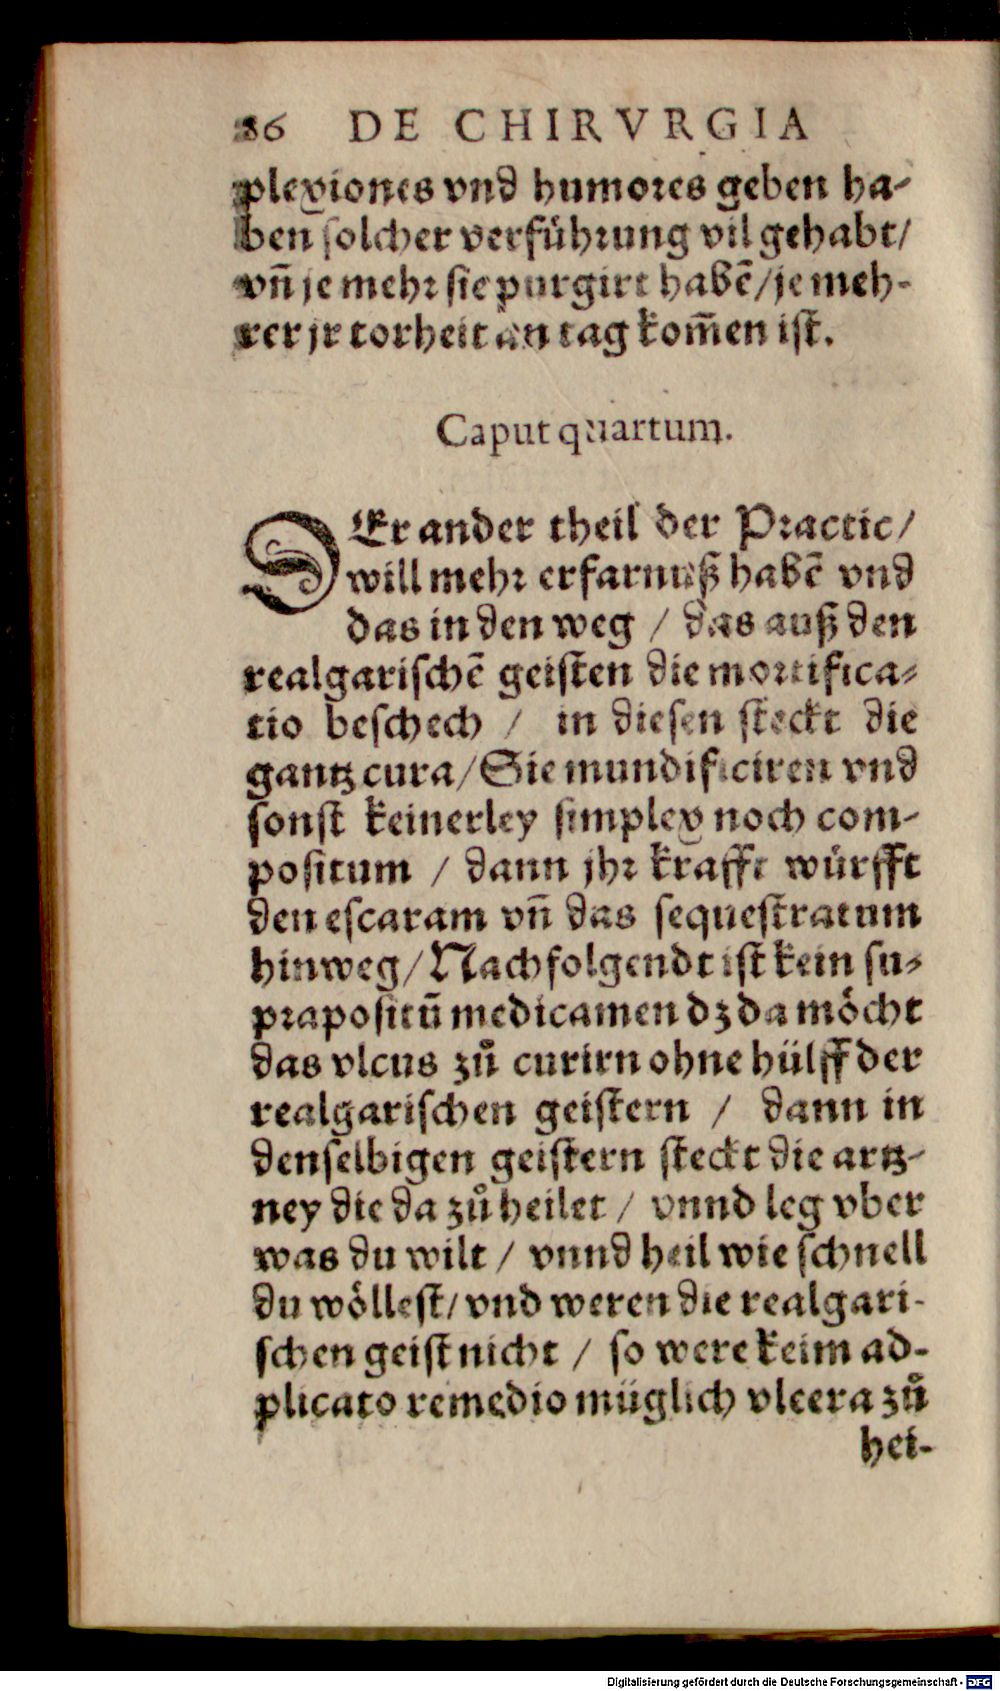 86 DE CHIRVRGIA
plexiones vnd humores geben ha-
ben solcher verführung vil gehabt/
vn̄ je mehr sie purgirt habē/je meh-
rer jr torheit an tag kom̄en ist.
Caput quartum.
DEr ander theil der Practic/
will mehr erfarnuß habē vnd
das in den weg / das auß den
realgarischē geisten die mortifica-
tio beschech / in diesen steckt die
gantz cura/Sie mundificiren vnd
sonst keinerley simplex noch com-
positum / dann jhr krafft würfft
den escaram vn̄ das sequestratum
hinweg/Nachfolgendt ist kein su-
prapositū medicamen dz da möcht
das vlcus zů curirn ohne hülff der
realgarischen geistern / dann in
denselbigen geistern steckt die artz-
ney die da zů heilet / vnnd leg vber
was du wilt / vnnd heil wie schnell
du wöllest/vnd weren die realgari-
schen geist nicht / so were keim ad-
plicato remedio müglich vlcera zů
hei-
Digitalisierung gefördert durch die Deutsche Forschungsgemeinschaft - DFG